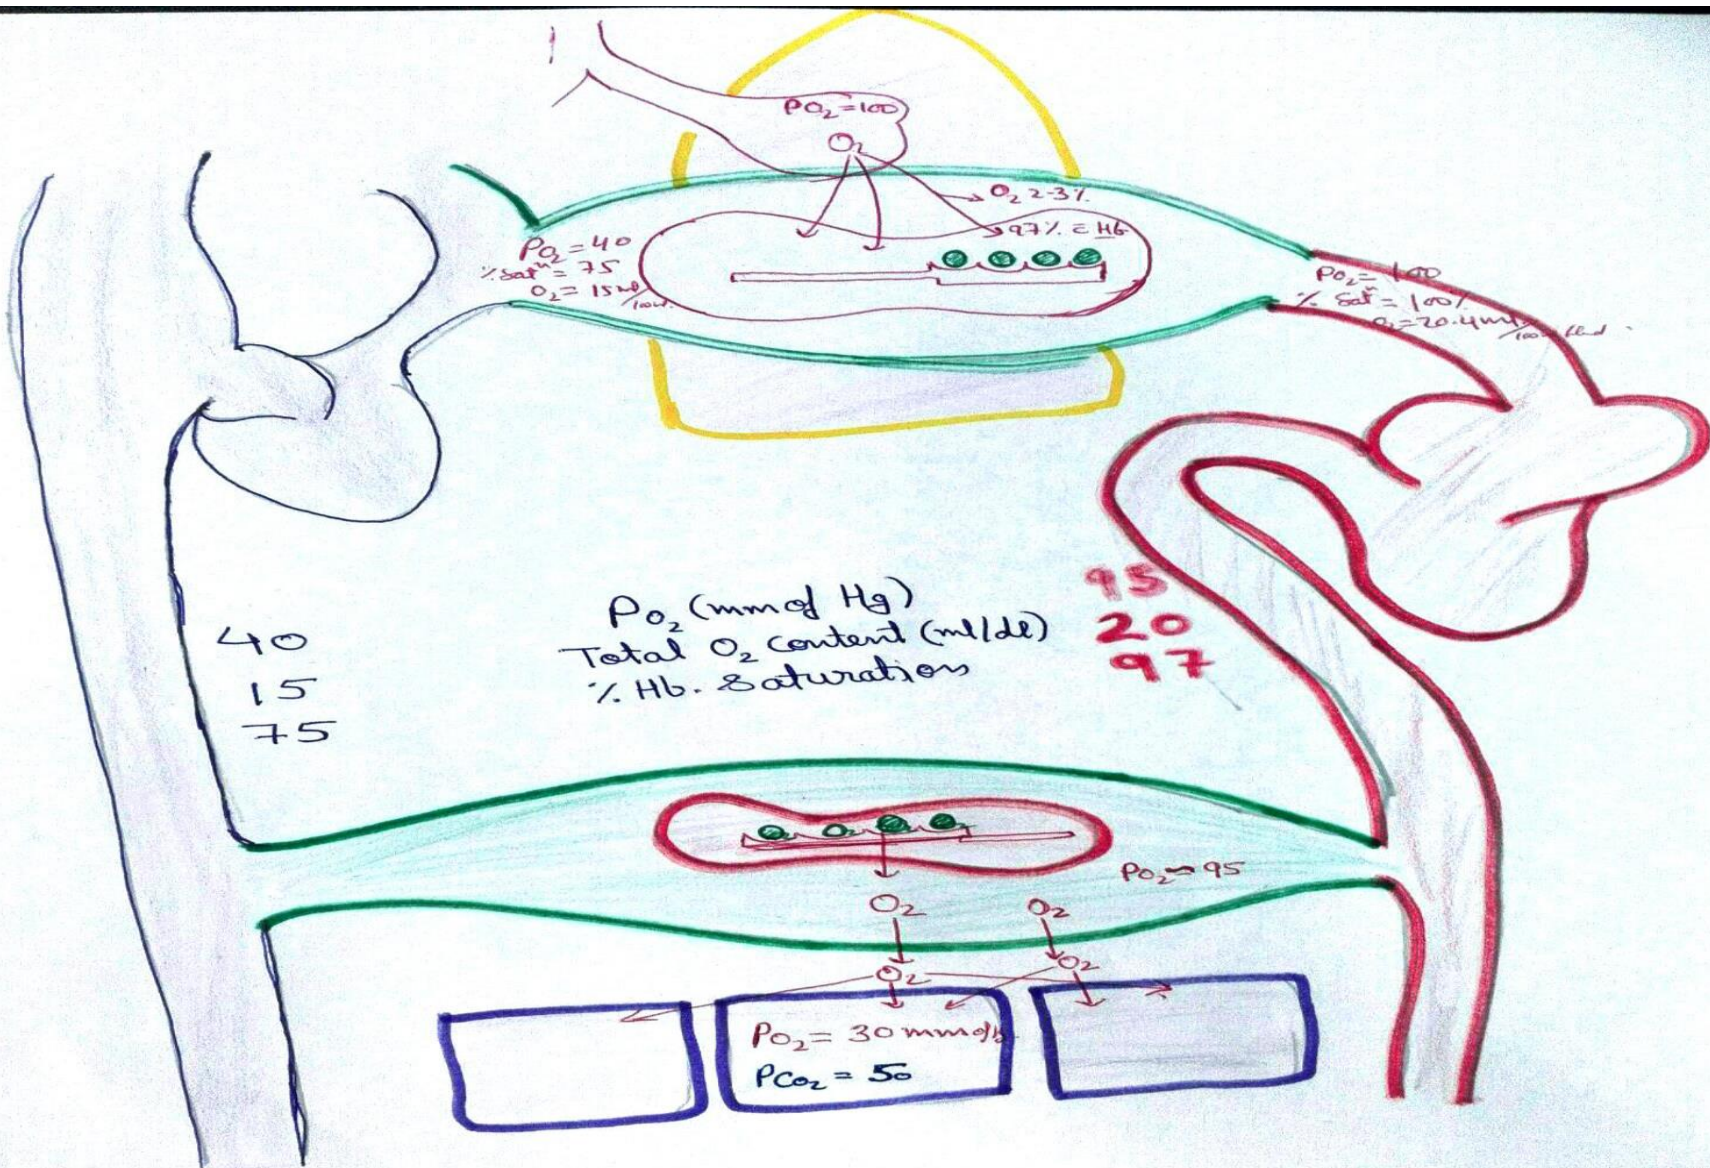 PO₂ = 100
O₂
O₂ 2-3%
97% c̄ Hb
PO₂ = 40
% Satⁿ = 75
O₂ = 15 ml/100ml
PO₂ = 100
% Satⁿ = 100%
O₂ = 20.4 ml/100
PO₂ (mm of Hg)
Total O₂ content (ml/dl)
% Hb. Saturation
95
20
97
40
15
75
PO₂ = 95
O₂
O₂
O₂
O₂
PO₂ = 30 mm of
PCO₂ = 50